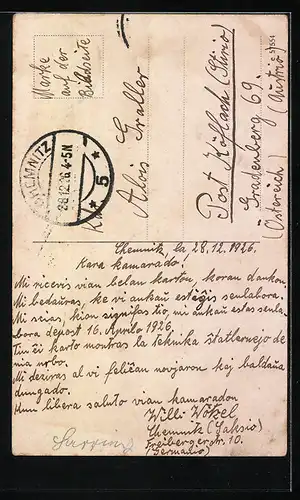 Marke
auf der
Bildseite
CHEMNITZ
28.12.26. 4-5N
* 5 *
Alois Graller
Post Köflach (Stirio)
Gradenberg 69.
(Österreich) (Austrio)
Chemnitz, la 28.12.1926.
Kara kamarado.
Mi ricevis vian belan karton, koran dankon.
Mi bedaŭras, ke vi ankaŭ estas senlabora.
Mi scias, kion signifas tio, mi ankaŭ estas senla-
bora depost 16. Aprilo 1926.
Tiu ĉi karto montras la teknika ŝtatlernejo de
mia urbo.
Mi deziras al vi feliĉan novjaron kaj baldaŭa
dungado.
Kun libera saluto vian kamaradon
Willi Wökel
Chemnitz (Saksio)
Freibergerstr. 10.
(Germanio)